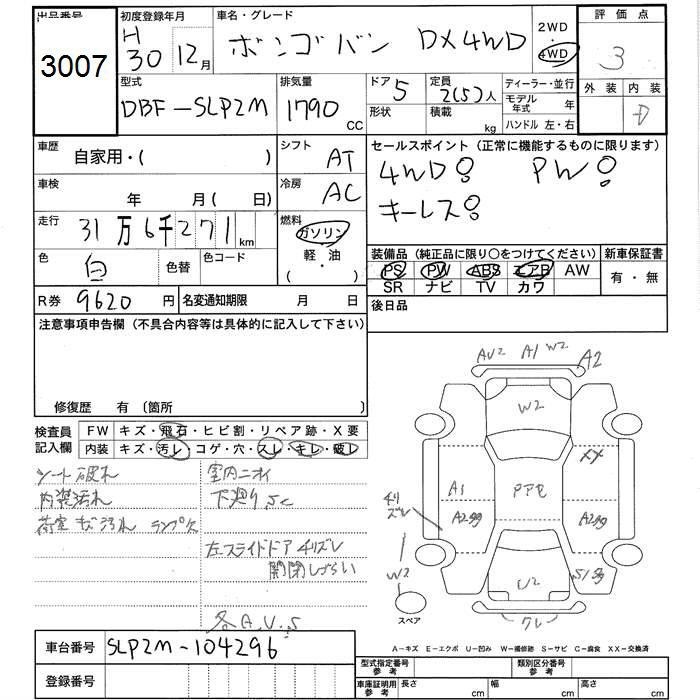 出品番号
3007
初度登録年月
H 30 12月
車名・グレード
ボンゴバン DX4WD
2WD
・
4WD
評価点
3
外装 内装
D
型式
DBF-SLP2M
排気量
1790 CC
ドア 5
形状
定員 2(5)人
積載 kg
ディーラー・並行
モデル年式 年
ハンドル 左・右
車歴
自家用・( )
シフト AT
車検
年 月 ( 日)
冷房 AC
走行
31万6千271km
燃料
ガソリン
軽・油
( ・ )
色 白
色替
色コード
R券 9620円
名変通知期限 月 日
セールスポイント(正常に機能するものに限ります)
4WD! PW!
キーレス!
装備品(純正品に限り○をつけてください)
PS PW ABS エアB AW
SR ナビ TV カワ
新車保証書
有・無
後日品
注意事項申告欄(不具合内容等は具体的に記入して下さい)
修復歴 有 〔箇所 〕
検査員記入欄
FW キズ・飛石・ヒビ割・リペア跡・X要
内装 キズ・汚レ・コゲ・穴・スレ・キレ・破レ
シート破れ
内装汚れ
荷室キズ汚れ
室内ニオイ
下廻りSC
左スライドドアチリズレ
開閉しづらい
各A.U.S
AU2 A1 W2 A2
W2
XX
A1
A299
チリズレ
W2
U2
クレ
スペア
A-キズ E-エクボ U-凹み W-補修跡 S-サビ C-腐食 XX-交換済
車台番号 SLP2M-104296
登録番号
型式指定番号 参考
類別区分番号 参考
車庫証明用 参考
長さ cm
幅 cm
高さ cm